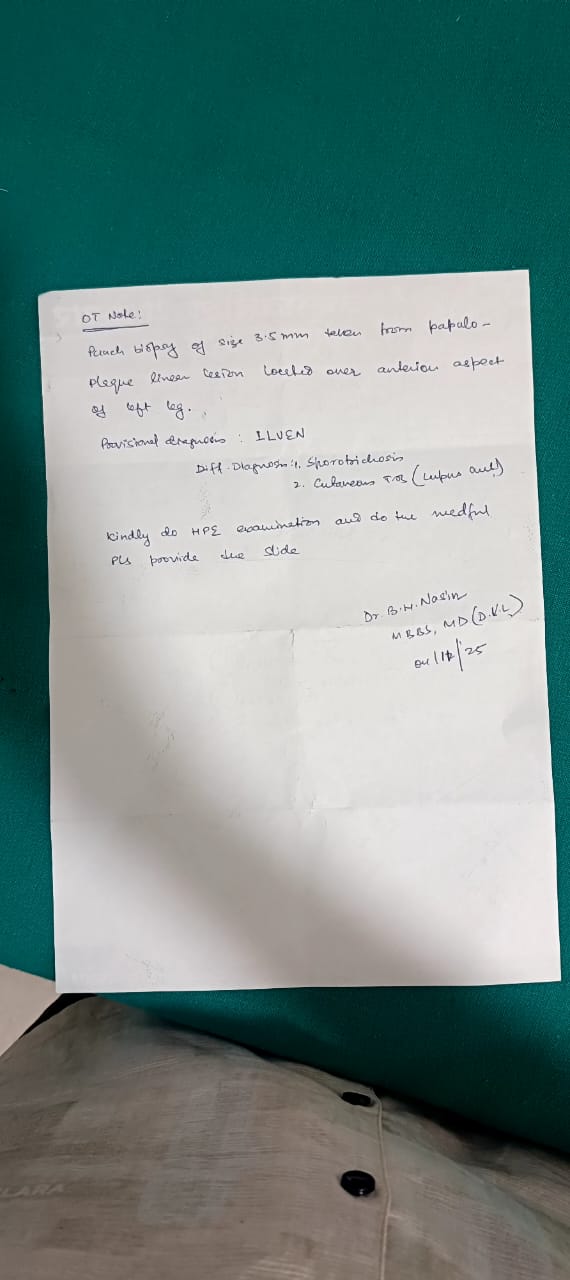 OT Note:
Punch biopsy of size 3.5mm taken from papulo-
plaque linear lesion located over anterior aspect
of left leg.
Provisional diagnosis : ILVEN
Diff. Diagnosis: 1. Sporotrichosis
2. Cutaneous T.B (Lupus
Kindly do HPE examination and do the needful
Pls provide the slide
Dr. B.H. Nasin
MBBS, MD (D.V.L)
/25
LARA